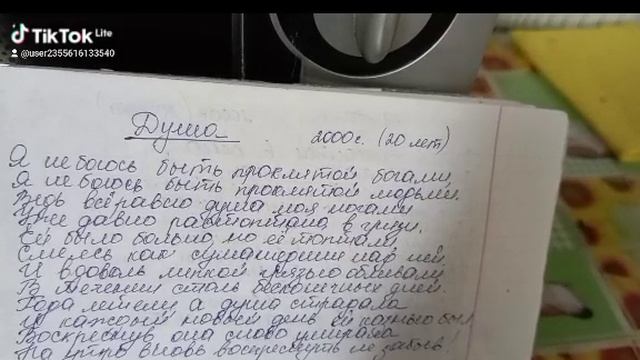 TikTok Lite
@user2355616133540
Душа 2000г. (20 лет)
Я не боюсь быть проклятой богами,
Я не боюсь быть проклятой людьми.
Ведь всё равно душа моя ногами
Уже давно растоптана в грязи.
Ей было больно, но её топтали,
Смеясь как сумасшедшие над ней.
И вдоволь липкой грязью обливали
В течении столь бесконечных дней.
Года летели, а душа страдала
И каждый новый день ей казнью был
Воскреснув она снова умирала
На утро вновь воскреснуть не забыв